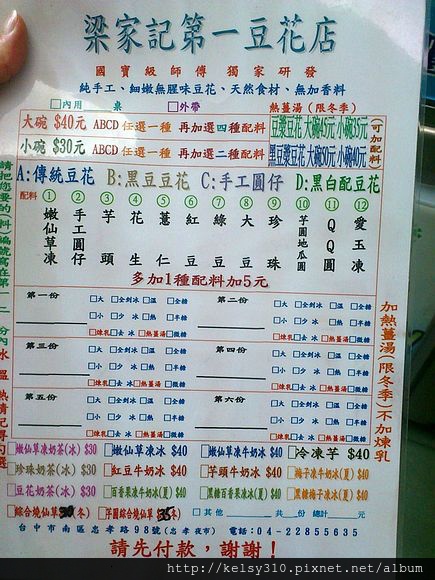 梁家記第一豆花店
國寶級師傅 獨家研發
純手工、細嫩無腥味豆花、天然食材、無加香料
□內用 桌 □外帶 熱薑湯(限冬季)
大碗 $40元 ABCD 任選一種 再加選四種配料 豆漿豆花 大碗45元 小碗35元
小碗 $30元 ABCD 任選一種 再加選二種配料 黑豆漿豆花 大碗50元 小碗40元
可加配料
A:傳統豆花 B:黑豆豆花 C:手工圓仔 D:黑白配豆花
配料 ① ② ③ ④ ⑤ ⑥ ⑦ ⑧ ⑨ ⑩ ⑪ ⑫
嫩仙草凍
手工圓仔
芋頭
花生
薏仁
紅豆
綠豆
大豆
珍珠
芋圓地瓜圓
QQ圓
愛玉凍
多加1種配料加5元
第一份 □大 □全剉冰 □溫 □全糖
□小 □少冰 □熱 □半糖
□煉乳 □去冰 □熱薑湯 □微糖
第二份 □大 □全剉冰 □溫 □全糖
□小 □少冰 □熱 □半糖
□煉乳 □去冰 □熱薑湯 □微糖
第三份 □大 □全剉冰 □溫 □全糖
□小 □少冰 □熱 □半糖
□煉乳 □去冰 □熱薑湯 □微糖
第四份 □大 □全剉冰 □溫 □全糖
□小 □少冰 □熱 □半糖
□煉乳 □去冰 □熱薑湯 □微糖
第五份 □大 □全剉冰 □溫 □全糖
□小 □少冰 □熱 □半糖
□煉乳 □去冰 □熱薑湯 □微糖
第六份 □大 □全剉冰 □溫 □全糖
□小 □少冰 □熱 □半糖
□煉乳 □去冰 □熱薑湯 □微糖
加熱薑湯(限冬季)不加煉乳
□嫩仙草凍奶茶(冰) $30 □嫩仙草凍冰 $40 □嫩仙草凍牛奶冰 $40 □冷凍芋 $40
□珍珠奶茶(冰) $30 □紅豆牛奶冰 $40 □芋頭牛奶冰 $40 □梅子凍牛奶冰(夏) $40
□豆花奶茶(冰) $30 □百香果凍牛奶冰(夏) $40 □黑糖百香果凍冰(夏) $40 □黑糖梅子凍冰(夏) $40
□綜合燒仙草 30(冬) □芋圓燒仙草 35(冬) □其他 共 份 總計 元
台中市南區忠孝路98號(忠孝夜市) 電話:04-22855635
請先付款,謝謝!
http://kelsy310.pixnet.net/album